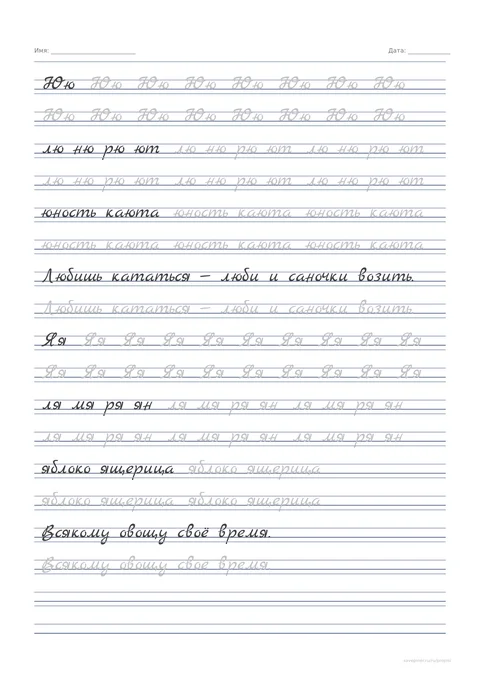 Имя: Дата:
Юю Юю Юю Юю Юю Юю Юю Юю
Юю Юю Юю Юю Юю Юю Юю Юю
лю ню рю ют лю ню рю ют лю ню рю ют
лю ню рю ют лю ню рю ют лю ню рю ют
юность каюта юность каюта юность каюта
юность каюта юность каюта юность каюта
Любишь кататься – люби и саночки возить.
Любишь кататься – люби и саночки возить
Яя Яя Яя Яя Яя Яя Яя Яя Яя Яя
Яя Яя Яя Яя Яя Яя Яя Яя Яя Яя
ля мя ря ян ля мя ря ян ля мя ря ян
ля мя ря ян ля мя ря ян ля мя ря ян
яблоко ящерица яблоко ящерица
яблоко ящерица яблоко ящерица
Всякому овощу своё время.
Всякому овощу свое время